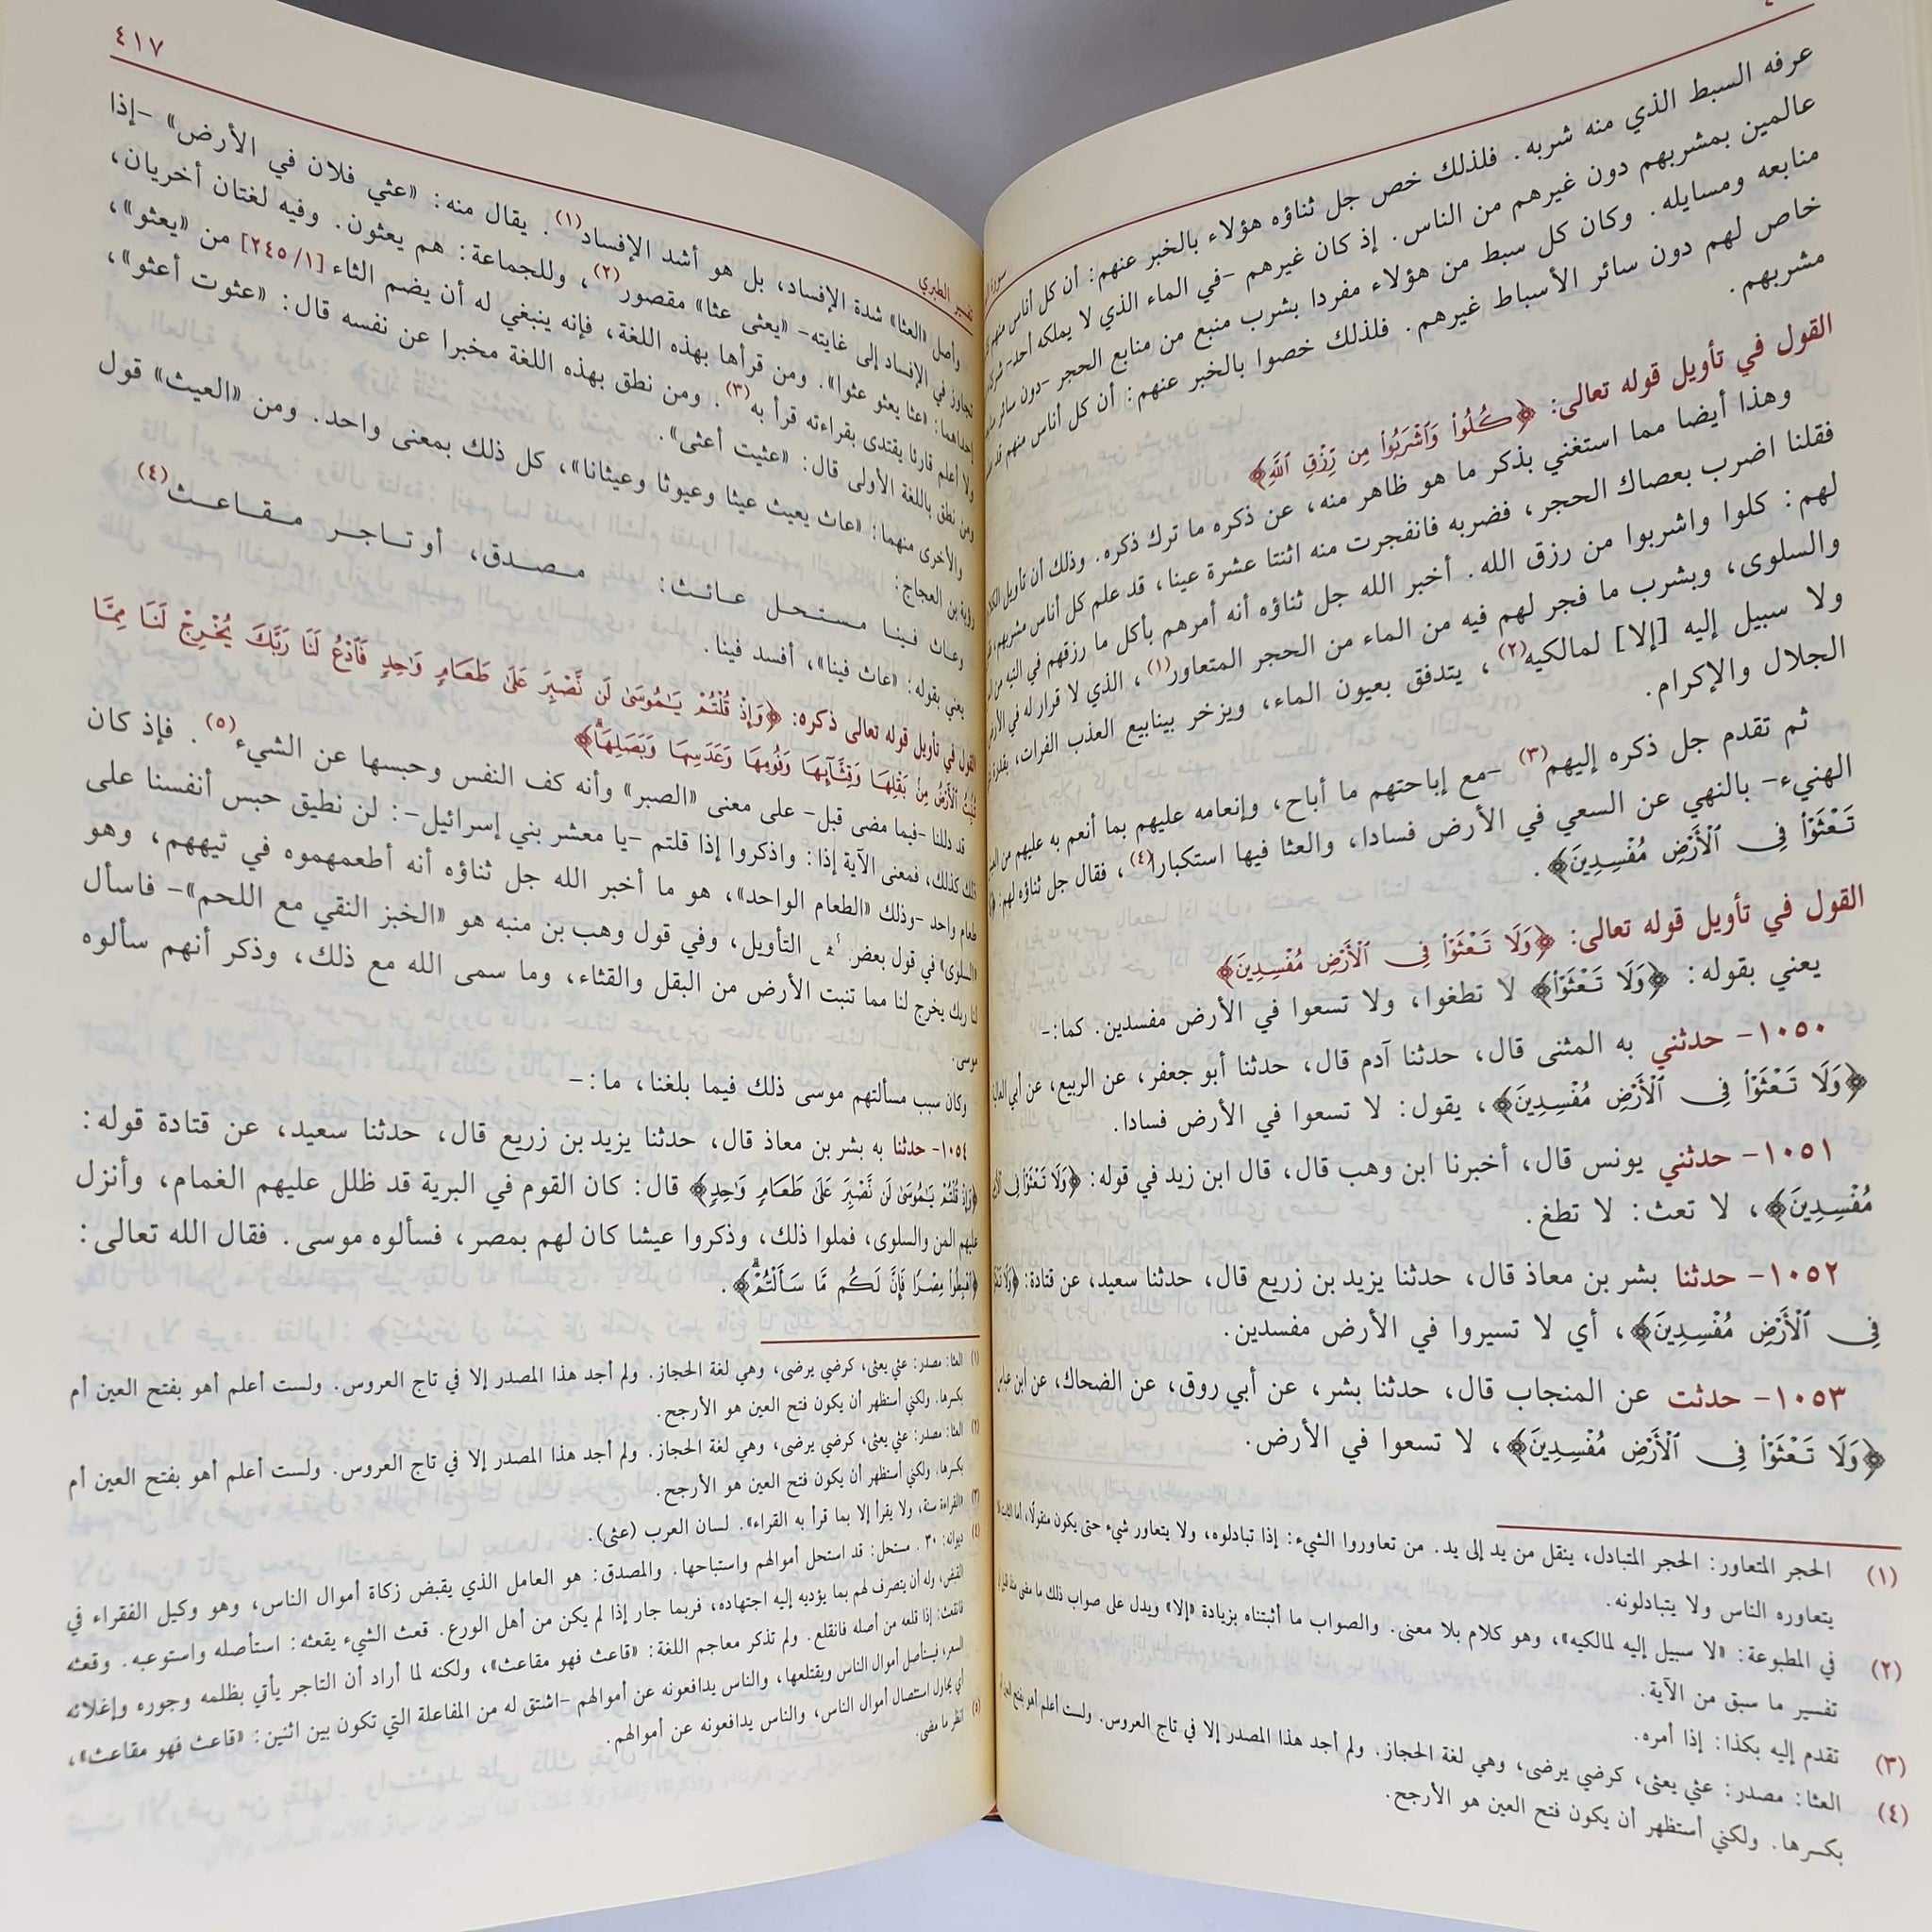 سورة
عرفه السبط الذي منه شربه. فلذلك خص جل ثناؤه هؤلاء بالخبر عنهم: أن كل أناس منهم
عالمين بمشربهم دون غيرهم من الناس. إذ كان غيرهم -في الماء الذي لا يملكه أحد-
منابعه ومسايله. وكان كل سبط من هؤلاء مفردا بشرب منبع من منابع الحجر -دون سائر
خاص لهم دون سائر الأسباط غيرهم. فلذلك خصوا بالخبر عنهم: أن كل أناس منهم قد
مشربهم.
القول في تأويل قوله تعالى: ﴿كُلُوا۟ وَٱشْرَبُوا۟ مِن رِّزْقِ ٱللَّهِ﴾
وهذا أيضا مما استغني بذكر ما هو ظاهر منه، عن ذكره ما ترك ذكره. وذلك أن تأويل
فقلنا اضرب بعصاك الحجر، فضربه فانفجرت منه اثنتا عشرة عينا، قد علم كل أناس مشربهم،
لهم: كلوا واشربوا من رزق الله. أخبر الله جل ثناؤه أنه أمرهم بأكل ما رزقهم في التيه من
والسلوى، وبشرب ما فجر لهم فيه من الماء من الحجر المتعاور(١)، الذي لا قرار له في الأرض
ولا سبيل إليه [إلا] لمالكيه(٢)، يتدفق بعيون الماء، ويزخر بينابيع العذب الفرات، بقدرة
الجلال والإكرام.
ثم تقدم جل ذكره إليهم(٣) -مع إباحتهم ما أباح، وإنعامه عليهم بما أنعم به عليهم من
الهنيء- بالنهي عن السعي في الأرض فسادا، والعثا فيها استكبارا(٤)، فقال جل ثناؤه لهم:
تَعْثَوْا۟ فِى ٱلْأَرْضِ مُفْسِدِينَ﴾.
القول في تأويل قوله تعالى: ﴿وَلَا تَعْثَوْا۟ فِى ٱلْأَرْضِ مُفْسِدِينَ﴾
يعني بقوله: ﴿وَلَا تَعْثَوْا۟﴾ لا تطغوا، ولا تسعوا في الأرض مفسدين. كما:-
١٠٥٠- حدثني به المثنى قال، حدثنا آدم قال، حدثنا أبو جعفر، عن الربيع، عن أبي
﴿وَلَا تَعْثَوْا۟ فِى ٱلْأَرْضِ مُفْسِدِينَ﴾، يقول: لا تسعوا في الأرض فسادا.
١٠٥١- حدثني يونس قال، أخبرنا ابن وهب قال، قال ابن زيد في قوله: ﴿وَلَا تَعْثَوْا۟ فِى
مُفْسِدِينَ﴾، لا تعث: لا تطغ.
١٠٥٢- حدثنا بشر بن معاذ قال، حدثنا يزيد بن زريع قال، حدثنا سعيد، عن قتادة:
فِى ٱلْأَرْضِ مُفْسِدِينَ﴾، أي لا تسيروا في الأرض مفسدين.
١٠٥٣- حدثت عن المنجاب قال، حدثنا بشر، عن أبي روق، عن الضحاك، عن ابن
﴿وَلَا تَعْثَوْا۟ فِى ٱلْأَرْضِ مُفْسِدِينَ﴾، لا تسعوا في الأرض.
(١) الحجر المتعاور: الحجر المتبادل، ينقل من يد إلى يد. من تعاوروا الشيء: إذا تبادلوه، ولا يتعاور شيء حتى يكون منقولا، أما
يتعاوره الناس ولا يتبادلونه.
(٢) في المطبوعة: «لا سبيل إليه لمالكيه»، وهو كلام بلا معنى. والصواب ما أثبتناه بزيادة «إلا» ويدل على صواب ذلك ما مضى
تفسير ما سبق من الآية.
(٣) تقدم إليه بكذا: إذا أمره.
(٤) العثا: مصدر: عثي يعثى، كرضي يرضى، وهي لغة الحجاز. ولم أجد هذا المصدر إلا في تاج العروس. ولست أعلم أهو بفتح
بكسرها. ولكني أستظهر أن يكون فتح العين هو الأرجح.
تفسير الطبري
٤١٧
وأصل «العثا» شدة الإفساد، بل هو أشد الإفساد(١). يقال منه: «عثي فلان في الأرض» -إذا
تجاوز في الإفساد إلى غايته- «يعثى عثا» مقصور(٢)، وللجماعة: هم يعثون. وفيه لغتان أخريان،
إحداهما: «عثا يعثو عثوا». ومن قرأها بهذه اللغة، فإنه ينبغي له أن يضم الثاء [١/ ٢٤٥] من «يعثو»،
ولا أعلم قارئا يقتدى بقراءته قرأ به(٣). ومن نطق بهذه اللغة مخبرا عن نفسه قال: «عثوت أعثو»،
ومن نطق باللغة الأولى قال: «عثيت أعثى».
والأخرى منهما: «عاث يعيث عيثا وعيوثا وعيثانا»، كل ذلك بمعنى واحد. ومن «العيث» قول
رؤبة بن العجاج:
وعاث فينا مستحل عائث: مصدق، أو تاجر مقاعث(٤)
يعني بقوله: «عاث فينا»، أفسد فينا.
القول في تأويل قوله تعالى ذكره: ﴿وَإِذْ قُلْتُمْ يَـٰمُوسَىٰ لَن نَّصْبِرَ عَلَىٰ طَعَامٍ وَٰحِدٍ فَٱدْعُ لَنَا رَبَّكَ يُخْرِجْ لَنَا مِمَّا
تُنۢبِتُ ٱلْأَرْضُ مِنۢ بَقْلِهَا وَقِثَّآئِهَا وَفُومِهَا وَعَدَسِهَا وَبَصَلِهَا﴾
قد دللنا -فيما مضى قبل- على معنى «الصبر» وأنه كف النفس وحبسها عن الشيء(٥). فإذ كان
ذلك كذلك، فمعنى الآية إذا: واذكروا إذا قلتم -يا معشر بني إسرائيل-: لن نطيق حبس أنفسنا على
طعام واحد -وذلك «الطعام الواحد»، هو ما أخبر الله جل ثناؤه أنه أطعمهموه في تيههم، وهو
«السلوى» في قول بعض التأويل، وفي قول وهب بن منبه هو «الخبز النقي مع اللحم»- فاسأل
لنا ربك يخرج لنا مما تنبت الأرض من البقل والقثاء، وما سمى الله مع ذلك، وذكر أنهم سألوه
موسى.
وكان سبب مسألتهم موسى ذلك فيما بلغنا، ما:-
١٠٥٤- حدثنا به بشر بن معاذ قال، حدثنا يزيد بن زريع قال، حدثنا سعيد، عن قتادة قوله:
﴿وَإِذْ قُلْتُمْ يَـٰمُوسَىٰ لَن نَّصْبِرَ عَلَىٰ طَعَامٍ وَٰحِدٍ﴾ قال: كان القوم في البرية قد ظلل عليهم الغمام، وأنزل
عليهم المن والسلوى، فملوا ذلك، وذكروا عيشا كان لهم بمصر، فسألوه موسى. فقال الله تعالى:
﴿ٱهْبِطُوا۟ مِصْرًا فَإِنَّ لَكُم مَّا سَأَلْتُمْ﴾.
(١) العثا: مصدر: عثي يعثى، كرضي يرضى، وهي لغة الحجاز. ولم أجد هذا المصدر إلا في تاج العروس. ولست أعلم أهو بفتح العين أم
بكسرها. ولكني أستظهر أن يكون فتح العين هو الأرجح.
(٢) العثا: مصدر: عثي يعثى، كرضي يرضى، وهي لغة الحجاز. ولم أجد هذا المصدر إلا في تاج العروس. ولست أعلم أهو بفتح العين أم
بكسرها. ولكني أستظهر أن يكون فتح العين هو الأرجح.
(٣) «القراءة سنة، ولا يقرأ إلا بما قرأ به القراء». لسان العرب (عثى).
(٤) ديوانه: ٣٠. مستحل: قد استحل أموالهم واستباحها. والمصدق: هو العامل الذي يقبض زكاة أموال الناس، وهو وكيل الفقراء في
القبض، وله أن يتصرف لهم بما يؤديه إليه اجتهاده، فربما جار إذا لم يكن من أهل الورع. قعث الشيء يقعثه: استأصله واستوعبه. وقعثه
فانقعث: إذا قلعه من أصله فانقلع. ولم تذكر معاجم اللغة: «قاعث فهو مقاعث»، ولكنه لما أراد أن التاجر يأتي بظلمه وجوره وإغلائه
السعر، فيستأصل أموال الناس ويقتلعها، والناس يدافعونه عن أموالهم -اشتق له من المفاعلة التي تكون بين اثنين: «قاعث فهو مقاعث»،
أي يحاول استئصال أموال الناس، والناس يدافعونه عن أموالهم.
(٥) انظر ما مضى.